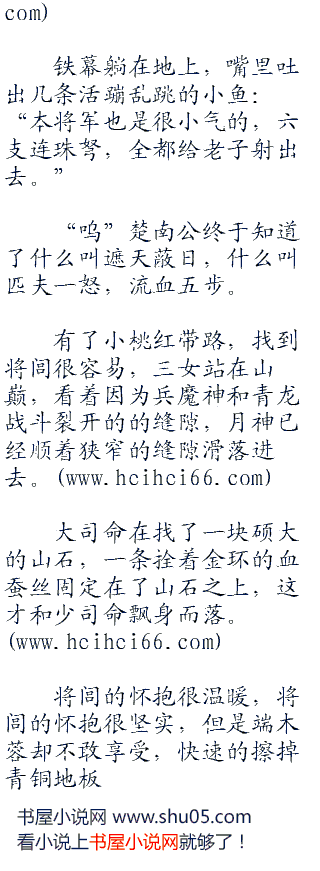 com)
铁幕躺在地上，嘴里吐
出几条活蹦乱跳的小鱼：
“本将军也是很小气的，六
支连珠弩，全都给老子射出
去。”
“呜”楚南公终于知道
了什么叫遮天蔽日，什么叫
匹夫一怒，流血五步。
有了小桃红带路，找到
将闾很容易，三女站在山
巅，看着因为兵魔神和青龙
战斗裂开的的缝隙，月神已
经顺着狭窄的缝隙滑落进
去。(www.hcihci66.com)
大司命在找了一块硕大
的山石，一条拴着金环的血
蚕丝固定在了山石之上，这
才和少司命飘身而落。
(www.hcihci66.com)
将闾的怀抱很温暖，将
闾的怀抱很坚实，但是端木
蓉却不敢享受，快速的擦掉
青铜地板
书屋小说网 www.shu05.com
看小说上书屋小说网就够了！